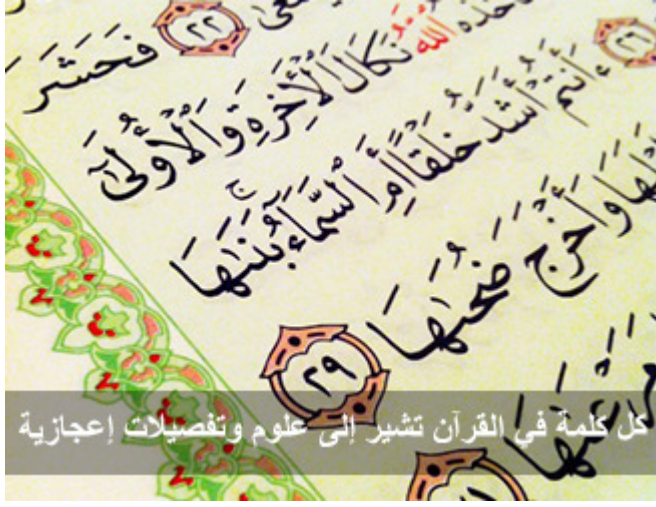 ٢٢ فَحَشَرَ
ٱللَّهُ نَكَالَ ٱلْأَخِرَةِ وَٱلْأُولَىٰٓ
٢٦
ءَأَنتُمْ أَشَدُّ خَلْقًا أَمِ ٱلسَّمَآءُ ۚ بَنَىٰهَا
وَأَخْرَجَ ضُحَىٰهَا
٢٩
كل كلمة في القرآن تشير إلى علوم وتفصيلات إعجازية